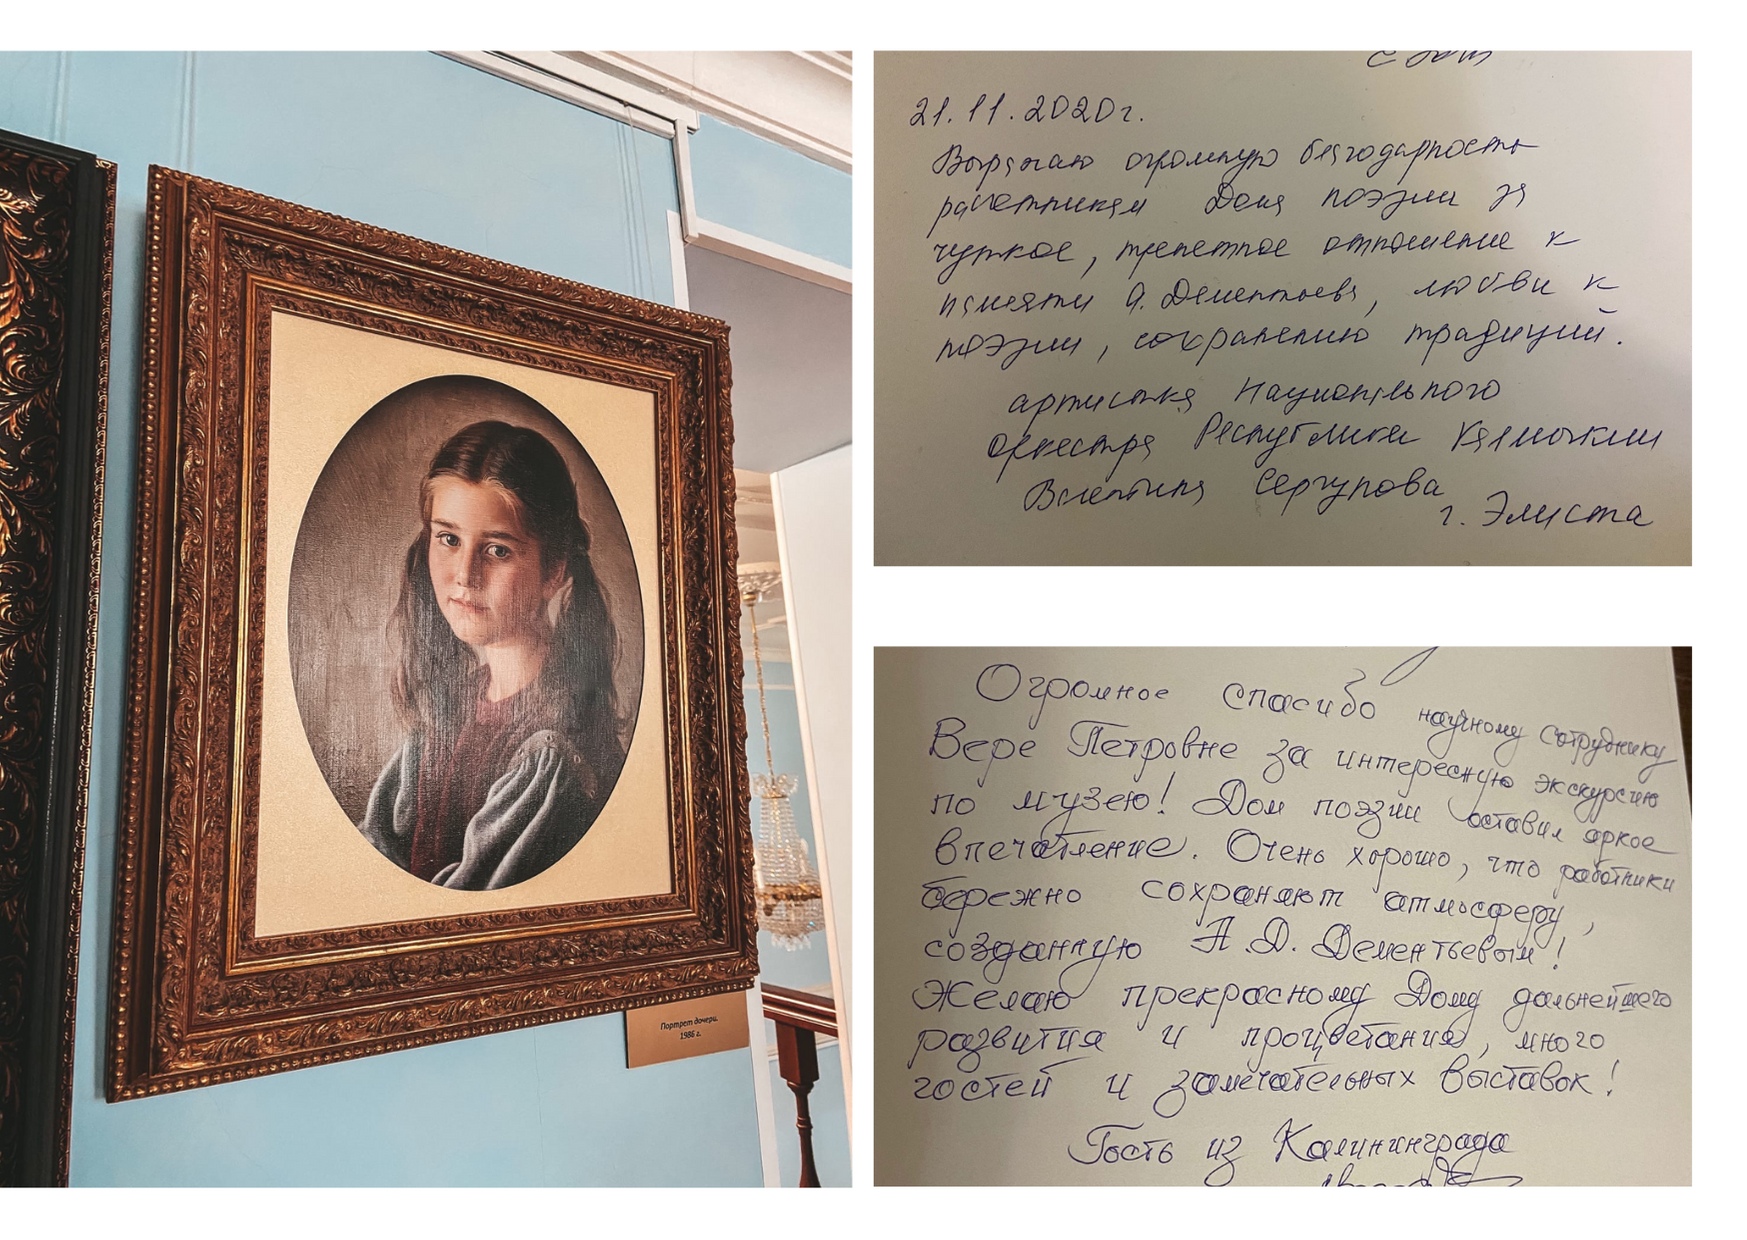 Портрет дочери.
1986 г.
21.11.2020г.
Выражаю огромную благодарность
работникам Дома поэзии за
чуткое, трепетное отношение к
памяти А. Дементьева, любви к
поэзии, сохранению традиций.
артистка Национального
оркестра Республики Калмыкии
Валентина
г. Элиста
Огромное спасибо научному сотруднику
Вере Петровне за интересную экскурсию
по музею! Дом поэзии оставил яркое
впечатление. Очень хорошо, что работники
бережно сохраняют атмосферу,
созданную А. Д. Дементьевым!
Желаю прекрасному Дому дальнейшего
развития и процветания, много
гостей и замечательных выставок!
Гость из Калининграда